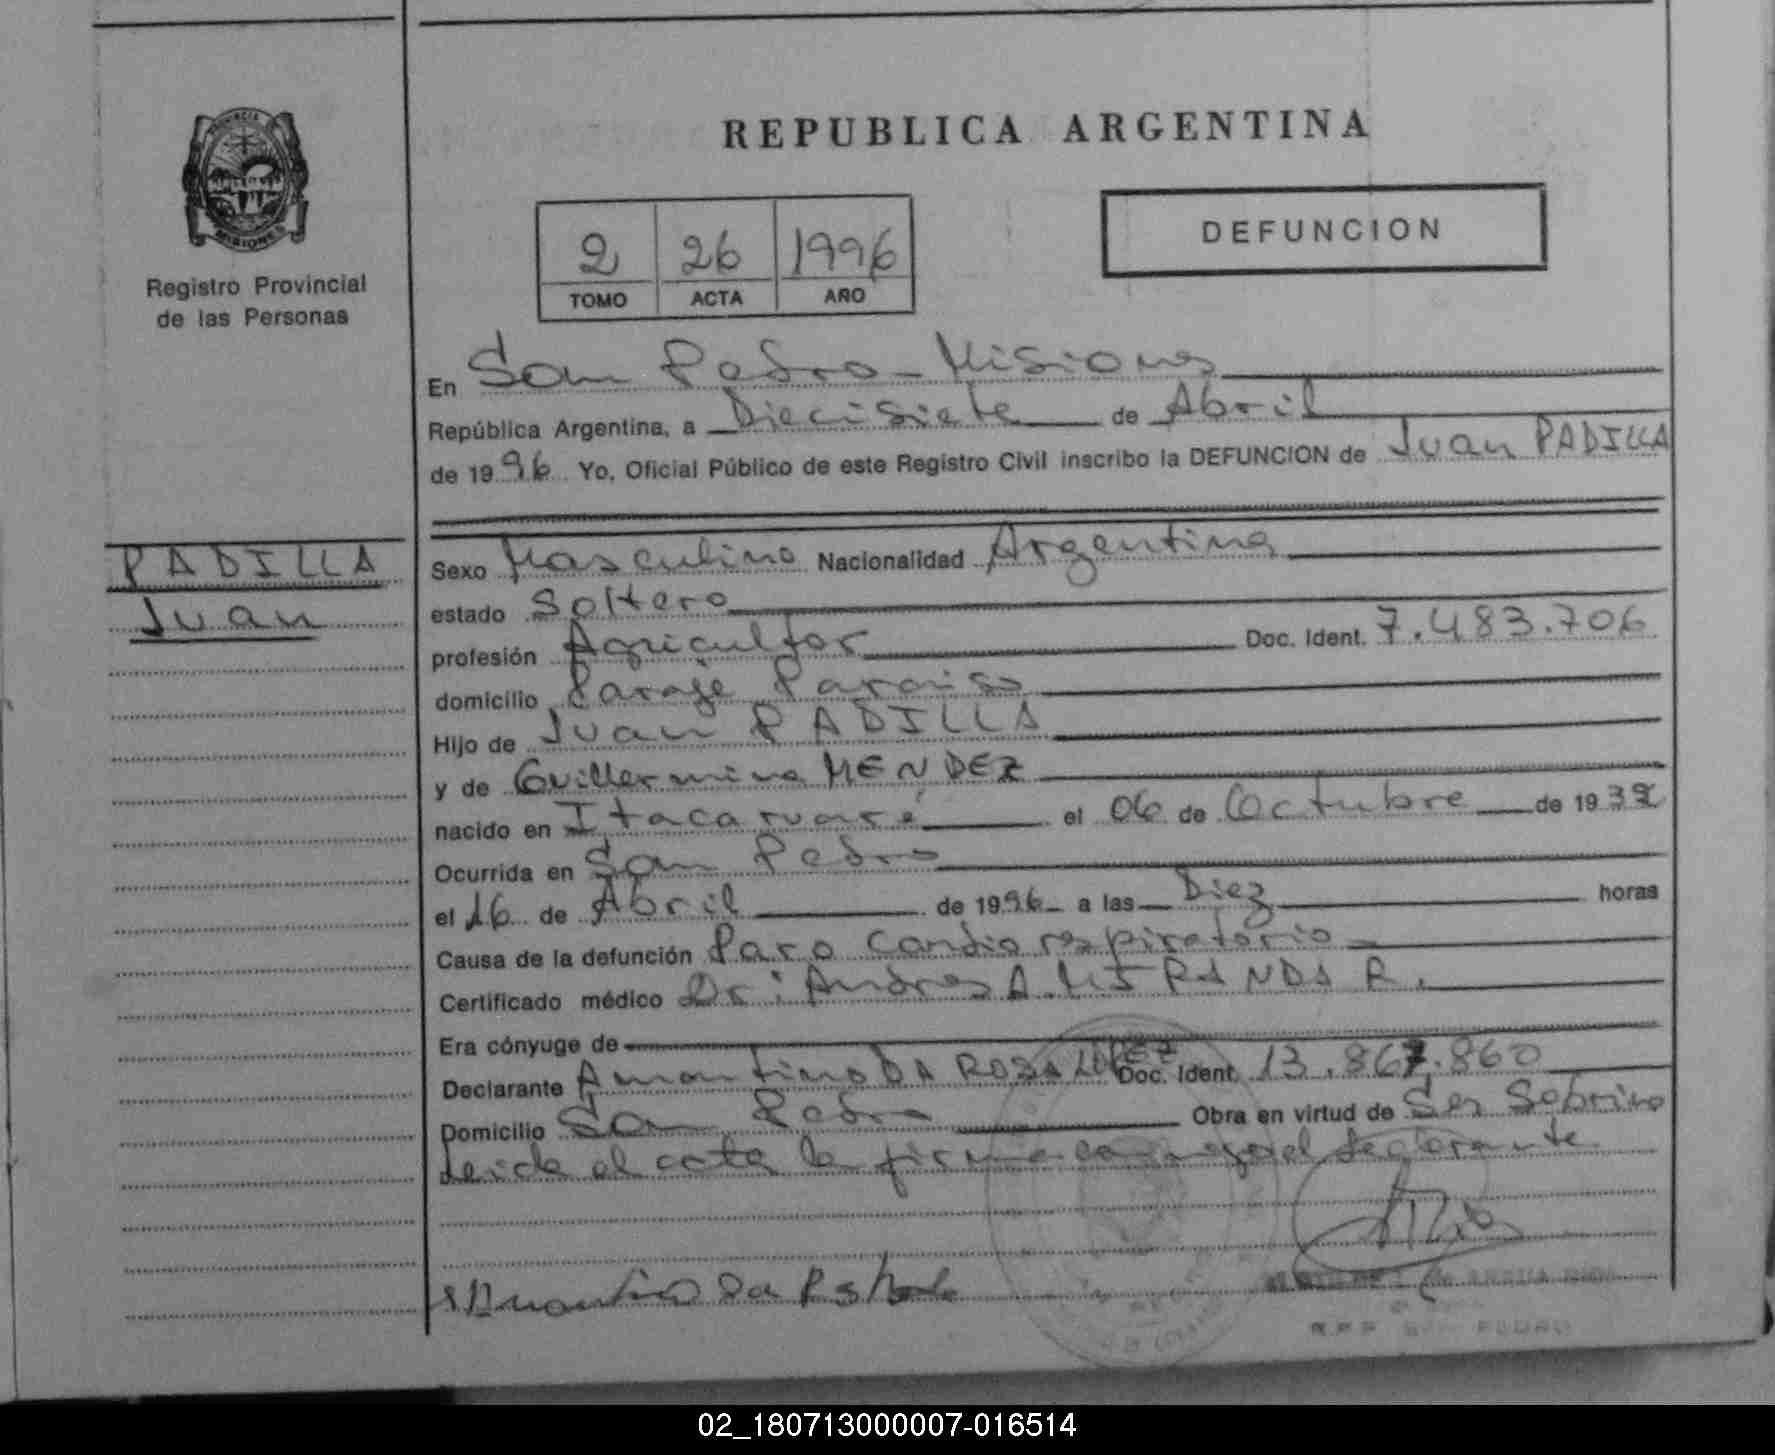 REPUBLICA ARGENTINA
PROVINCIA DE
MISIONES
Registro Provincial
de las Personas
2 26 1996
TOMO ACTA AÑO
DEFUNCION
En San Pedro - Misiones
República Argentina, a Diecisiete de Abril
de 1996 Yo, Oficial Público de este Registro Civil inscribo la DEFUNCION de Juan PADILLA
PADILLA
Juan
Sexo Masculino Nacionalidad Argentina
estado Soltero
profesión Agricultor Doc. Ident. 7.483.706
domicilio Paraje Paraiso
Hijo de Juan PADILLA
y de Guillermina MENDEZ
nacido en Itacaruaré el 06 de Octubre de 1932
Ocurrida en San Pedro
el 16 de Abril de 1996 a las Diez horas
Causa de la defunción Paro Cardio respiratorio
Certificado médico Dr: Andres A. MIRANDA R.
Era cónyuge de
Declarante Amantino DA ROSA Doc. Ident. 13.867.860
Domicilio San Pedro Obra en virtud de Ser Sobrino
Leida el acta la firma conmigo el declarante
R.P.P. SAN PEDRO
02_180713000007-016514